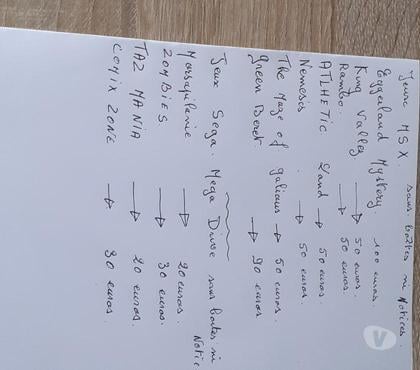 Jeux MSX. sans boites ni Notices.
Eggerland Mystery. 100 euros.
King Valley → 50 euros.
Rambo. → 50 euros.
ATLHETIC Land → 50 euros.
Nemesis. → 50 euros
The Maze of galious → 50 euros.
green Beret → 90 euros
Jeux Sega. Mega Drive sans boites ni Notic
Marsupulanie → 20 euros.
ZOMBIES. → 30 euros.
TAZ MANIA → 20 euros.
COMIX ZONE → 30 euros.
Vivastreet